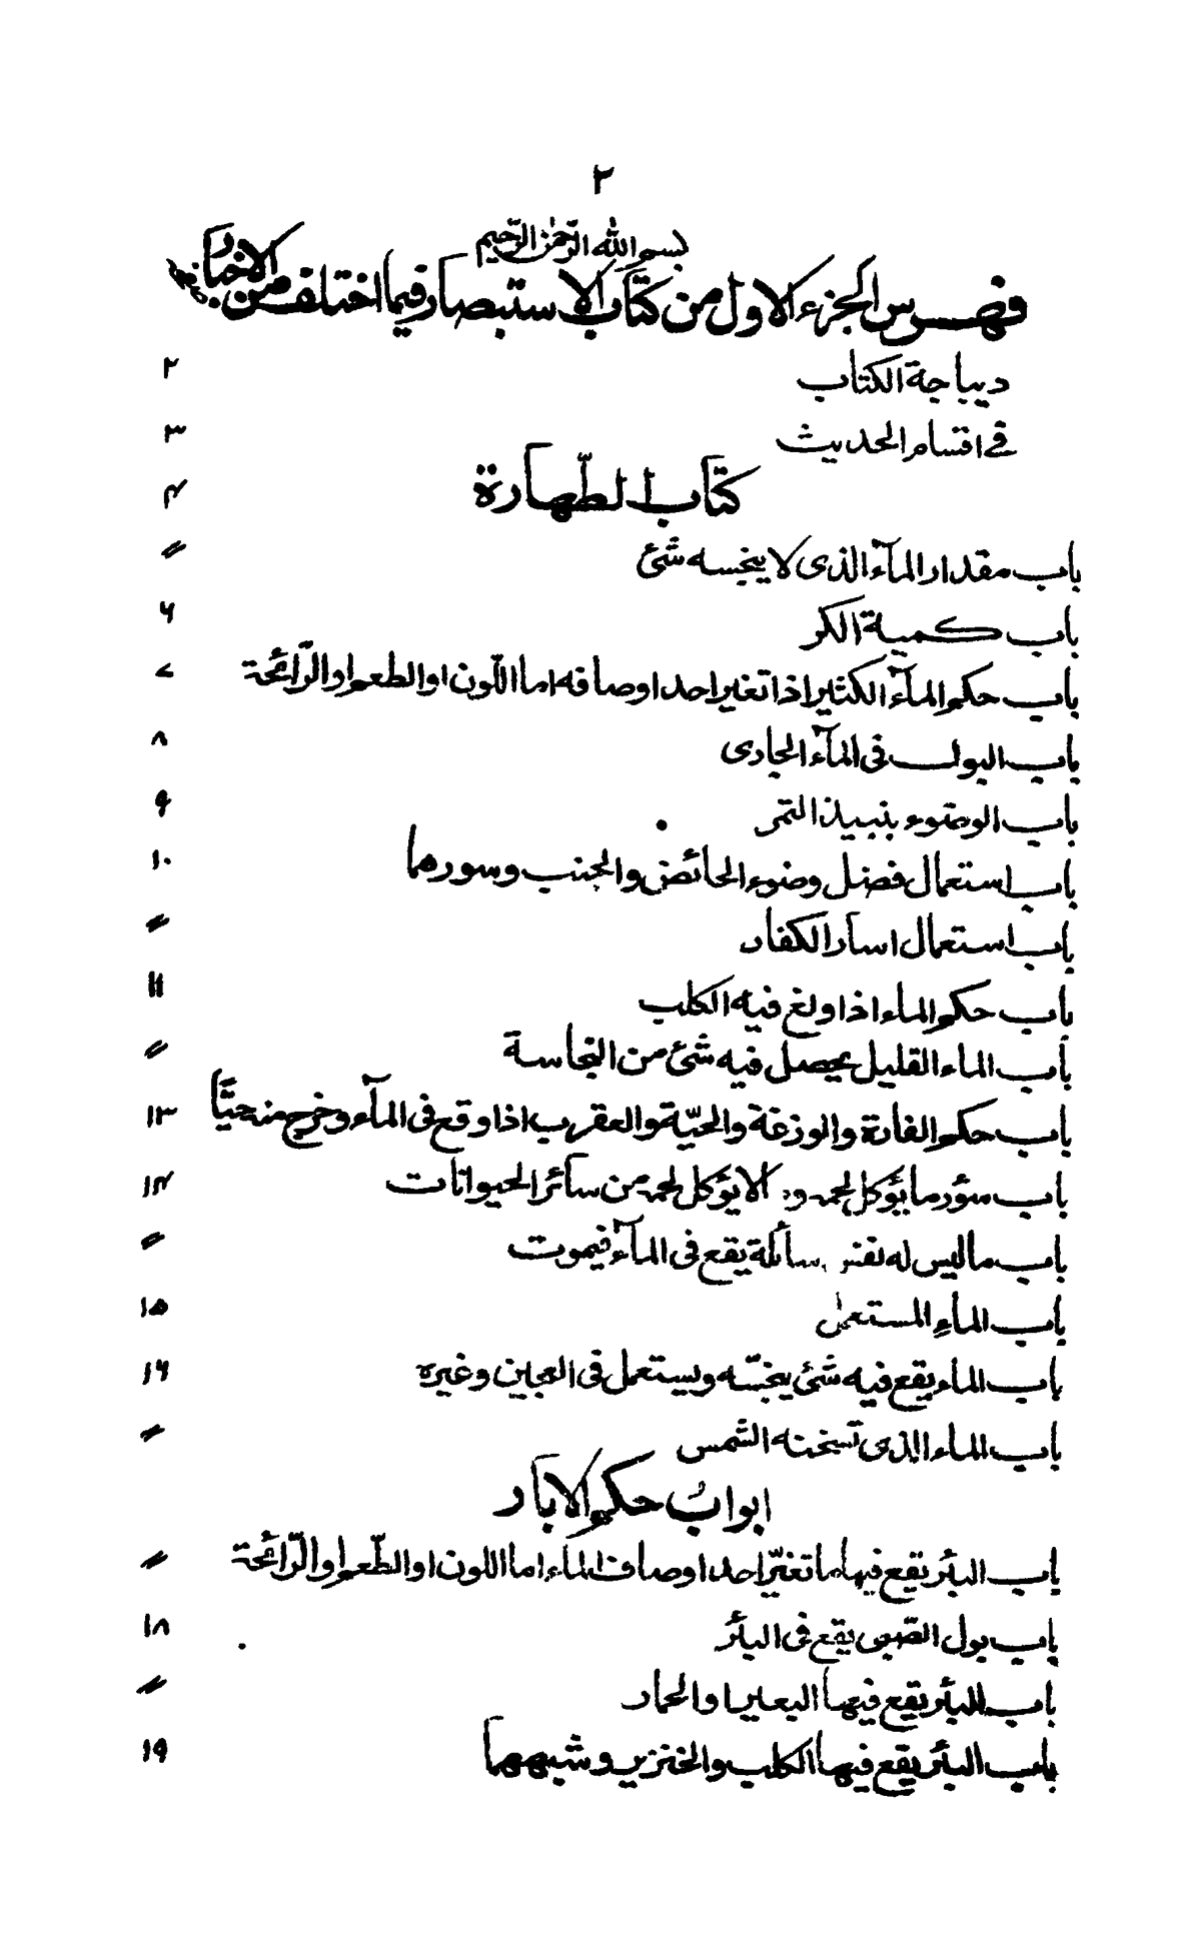 ۲
بسم الله الرّحمٰن الرّحیم
فهرس الجزء الاول من کتاب الاستبصار فیما اختلف من الاخبار
دیباجة الکتاب ۲
فے اقسام الحدیث ۳
کتاب الطّهارة ۴
باب مقدار المآء الذی لا ینجسه شئ //
باب کمیة الکر ۶
باب حکم المآء الکثیر اذا تغیر احد اوصافه اما اللّون او الطعم او الرّائحة ۷
باب البول فی المآء الجاری ۸
باب الوضوء بنبیذ التمر ۹
باب استعمال فضل وضوء الحائض والجنب وسورهما ۱۰
باب استعمال اسآر الکفار //
باب حکم الماء اذا ولغ فیه الکلب ۱۱
باب الماء القلیل یحصل فیه شئ من النجاسة //
باب حکم الفارة والوزغة والحیّة والعقرب اذا وقع فی المآء وخرج منه حیًّا ۱۳
باب سؤر ما یؤکل لحمه و لا یؤکل لحمه من سآئر الحیوانات ۱۴
باب ما لیس له نفس سآئلة یقع فی المآء فیموت //
باب الماءِ المستعمل ۱۵
باب الماء یقع فیه شئ ینجّسه ویستعمل فی العجین وغیره ۱۶
باب الماء الذی تسخنه الشّمس //
ابوابُ حکم الابار
باب البئر یقع فیها ما تغیّر احد اوصاف الماء اما اللون او الطّعم او الرّائحة //
باب بول الصّبی یقع فی البئر ۱۸
باب البئر یقع فیها البعیر او الحمار //
باب البئر یقع فیها الکلب والخنزیر وشبههما ۱۹